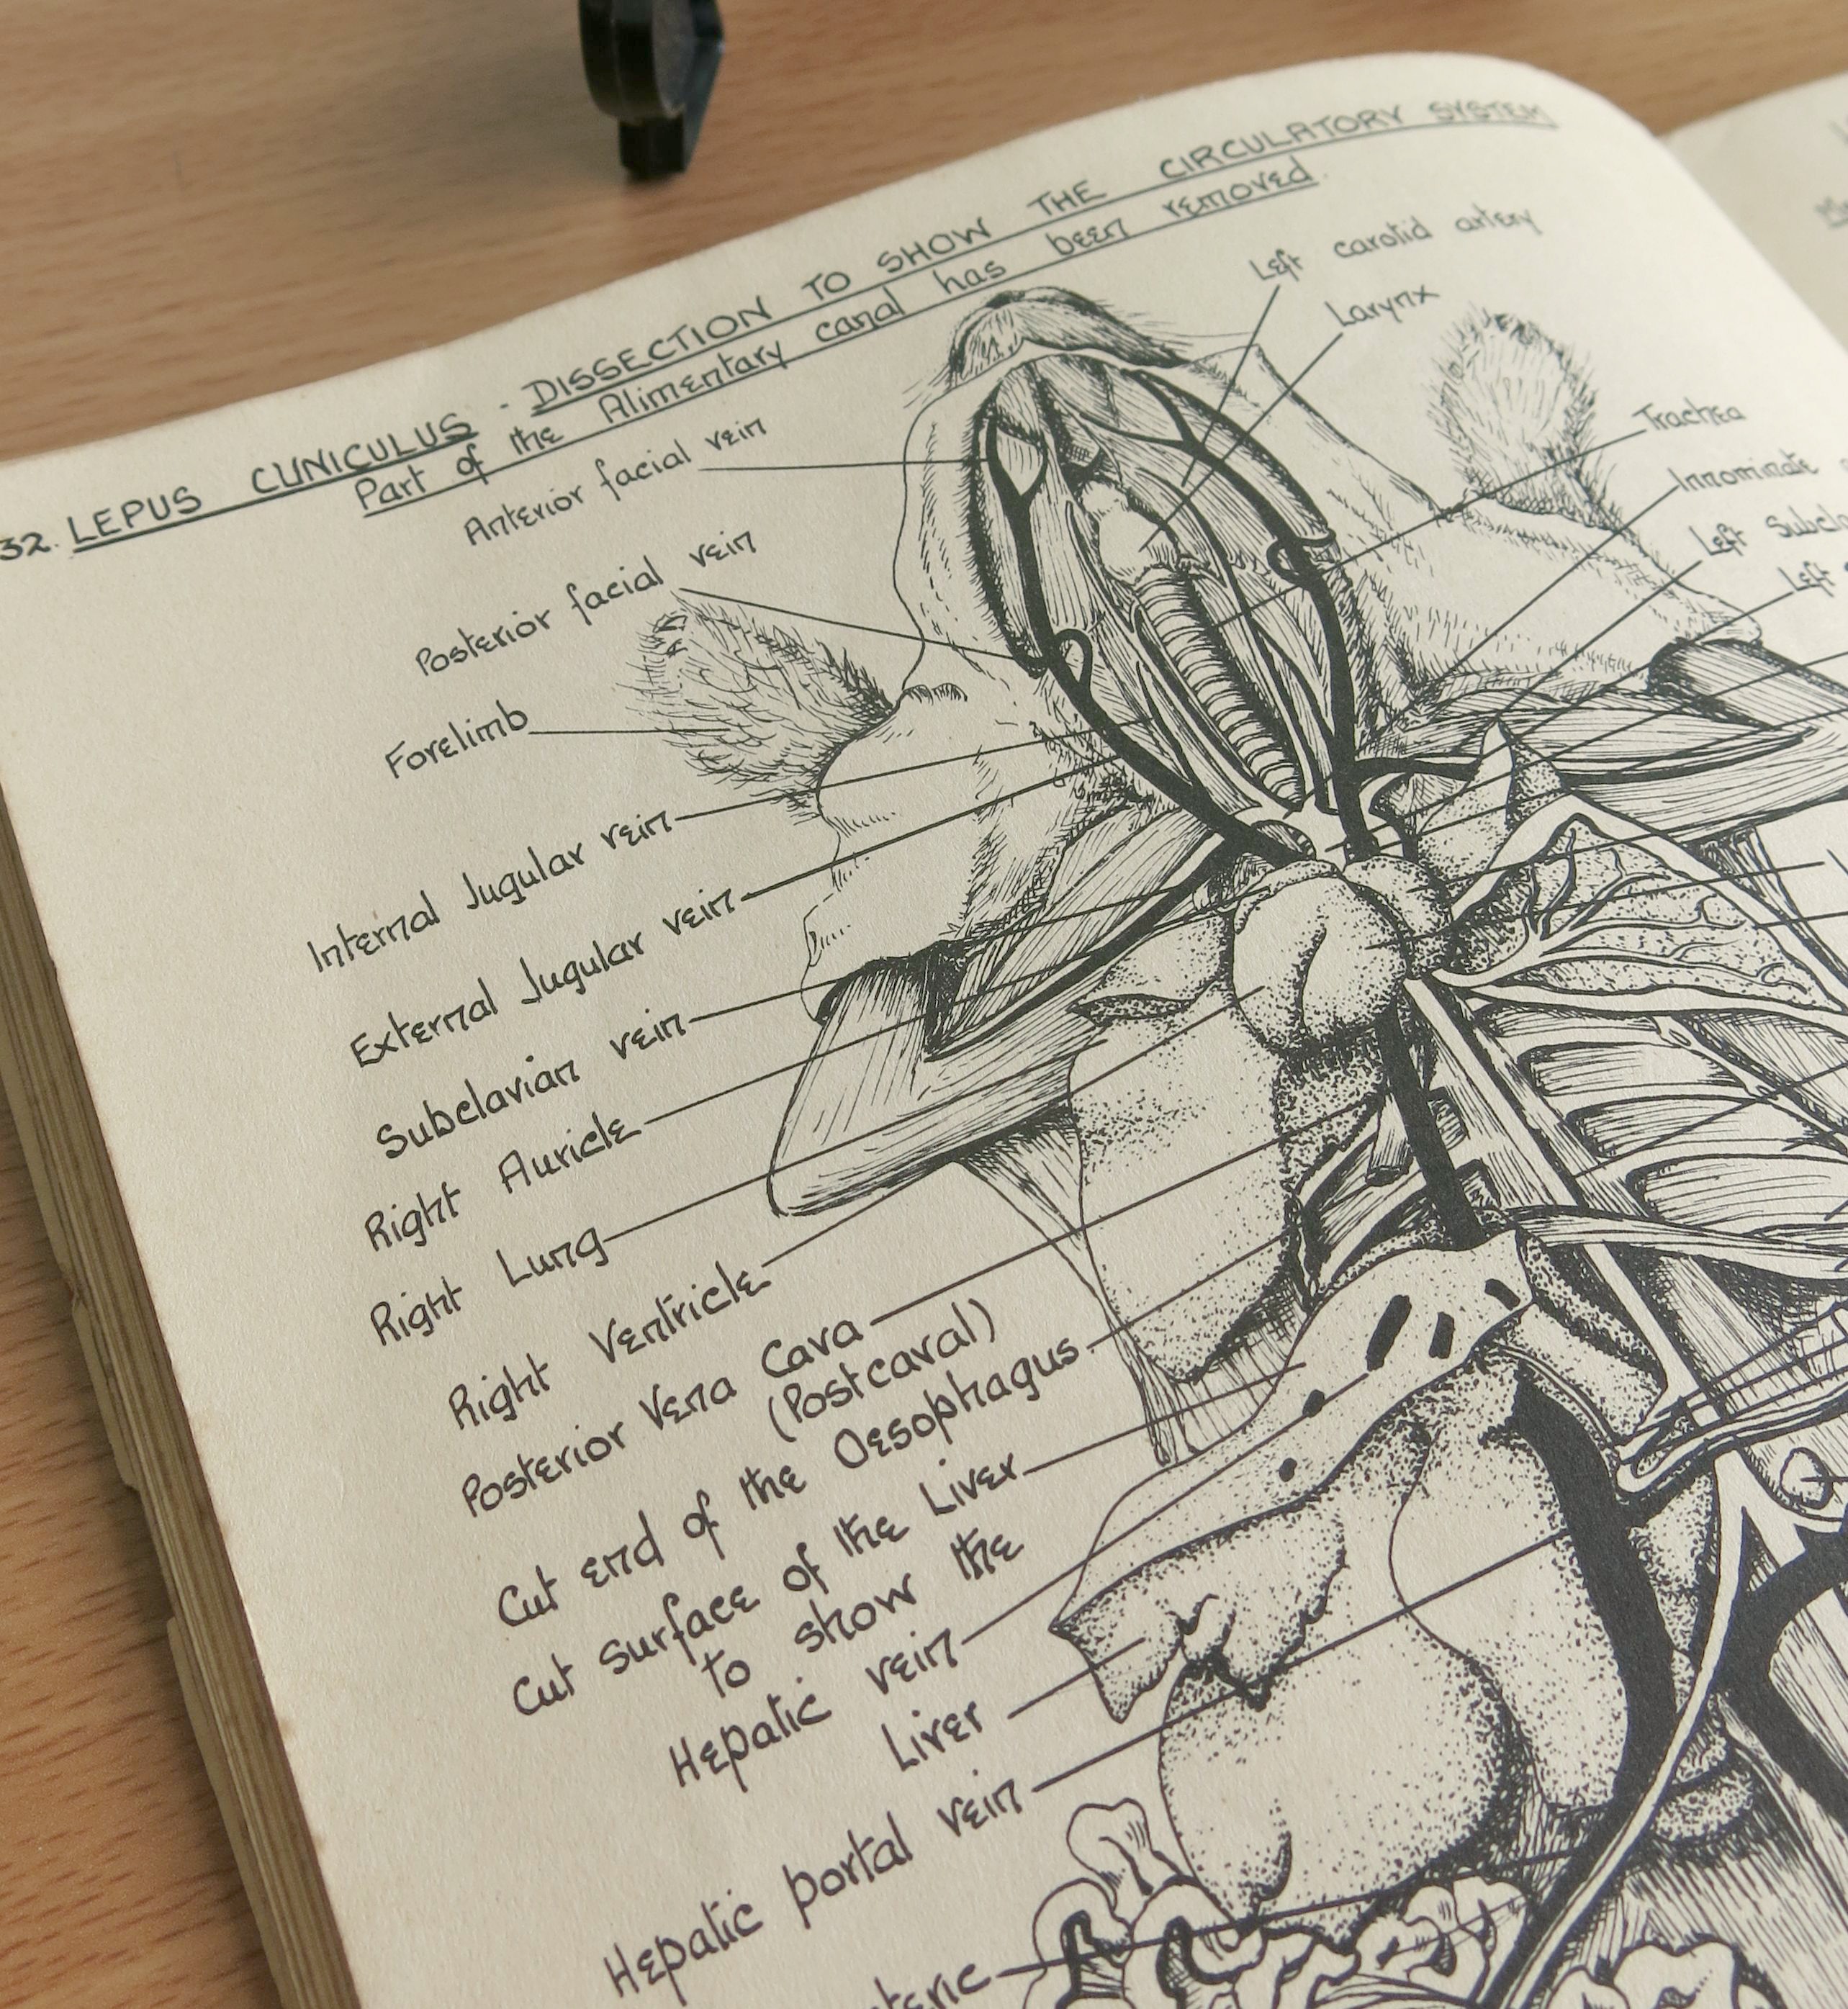 32. LEPUS CUNICULUS - DISSECTION TO SHOW THE CIRCULATORY SYSTEM
Part of the Alimentary canal has been removed.
Left carotid artery
Larynx
Trachea
Innominate
Left
Left
Anterior facial vein
Posterior facial vein
Forelimb
Internal Jugular vein
External Jugular vein
Subclavian vein
Right Auricle
Right Lung
Right Ventricle
Posterior Vena Cava
(Postcaval)
Cut end of the Oesophagus
Cut surface of the Liver
to show the
Hepatic vein
Liver
Hepatic portal vein